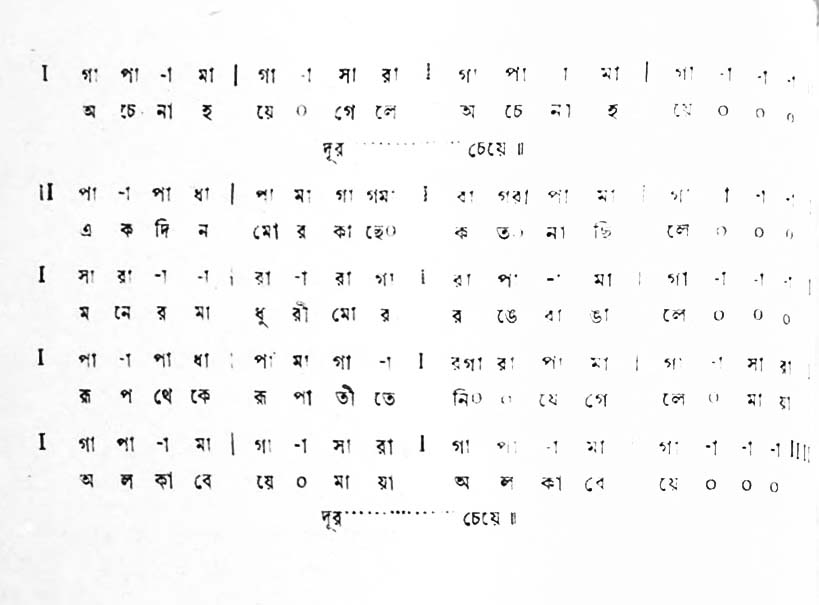 I গা পা -া মা | গা -া সা রা I গা পা া মা | গা -া -া -া
অ চে না হ য়ে ০ গে লে অ চে না হ য়ে ০ ০ ০
দূর ............... চেয়ে ॥
II পা -া পা ধা | পা মা গা গমা I রা গরা পা মা | গা া -া -া
এ ক দি ন মো র কা ছে০ ক ত০ না ছি লে ০ ০ ০
I সা রা -া -া | রা -া রা গা I রা পা -া মা | গা -া -া -া |
ম নে র মা ধু রী মো র র ঙে রা ঙা লে ০ ০ ০
I পা -া পা ধা | পা মা গা -া I রগা রা পা মা | গা -া সা রা |
রূ প থে কে রূ পা তী তে নি০ ০ য়ে গে লে ০ মা য়া
I গা পা -া মা | গা -া সা রা I গা পা -া মা গা -া -া -া IIII
অ ল কা বে য়ে ০ মা য়া অ ল কা বে য়ে ০ ০ ০
দূর ............... চেয়ে ॥